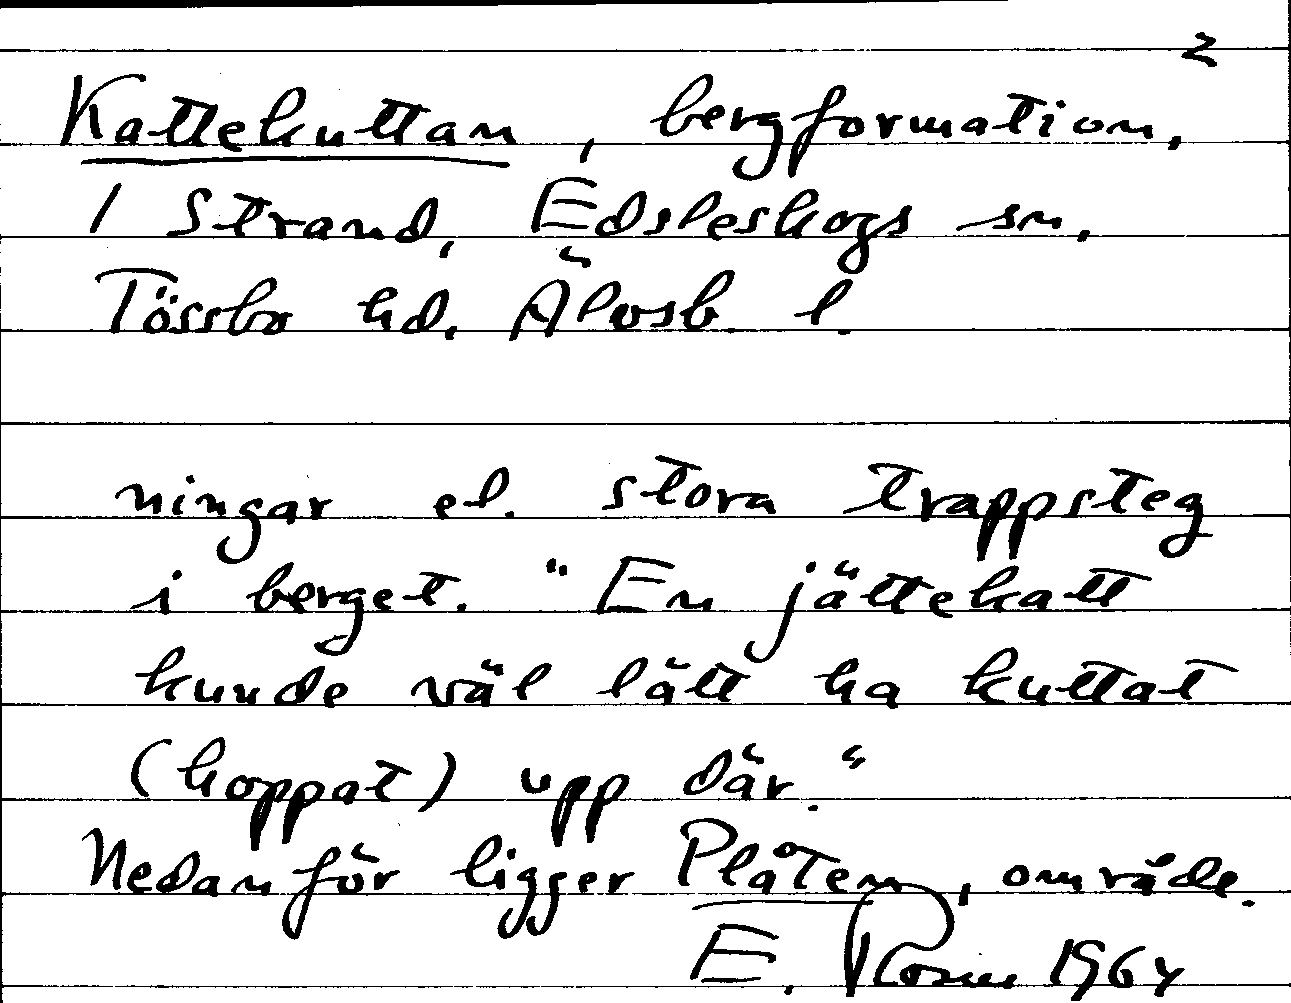 2
Kattekuttan, bergformation,
/ Strand, Edsleskogs sn,
Tössbo hd. Älvsb. l.
ningar el. stora trappsteg
i berget. "En jättekatt
kunde väl lätt ha kuttat
(hoppat) upp där."
Nedanför ligger Plåten, område.
E. Rosén 1964